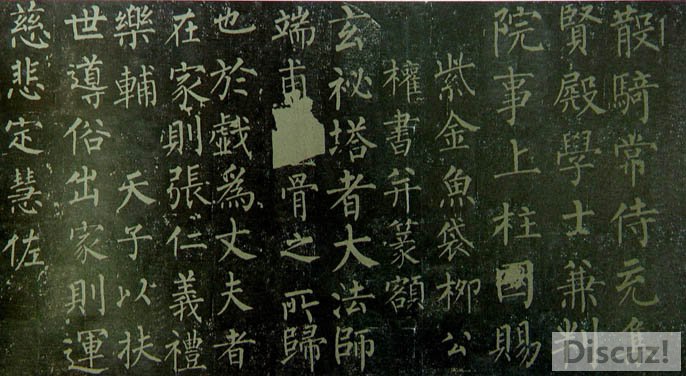 散騎常侍充集
賢殿學士兼判
院事上柱國賜
紫金魚袋柳公
權書并篆額
玄祕塔者大法師
端甫骨之所歸
也於戲為丈夫者
在家則張仁義禮
樂輔天子以扶
世導俗出家則運
慈悲定慧佐
Discuz!